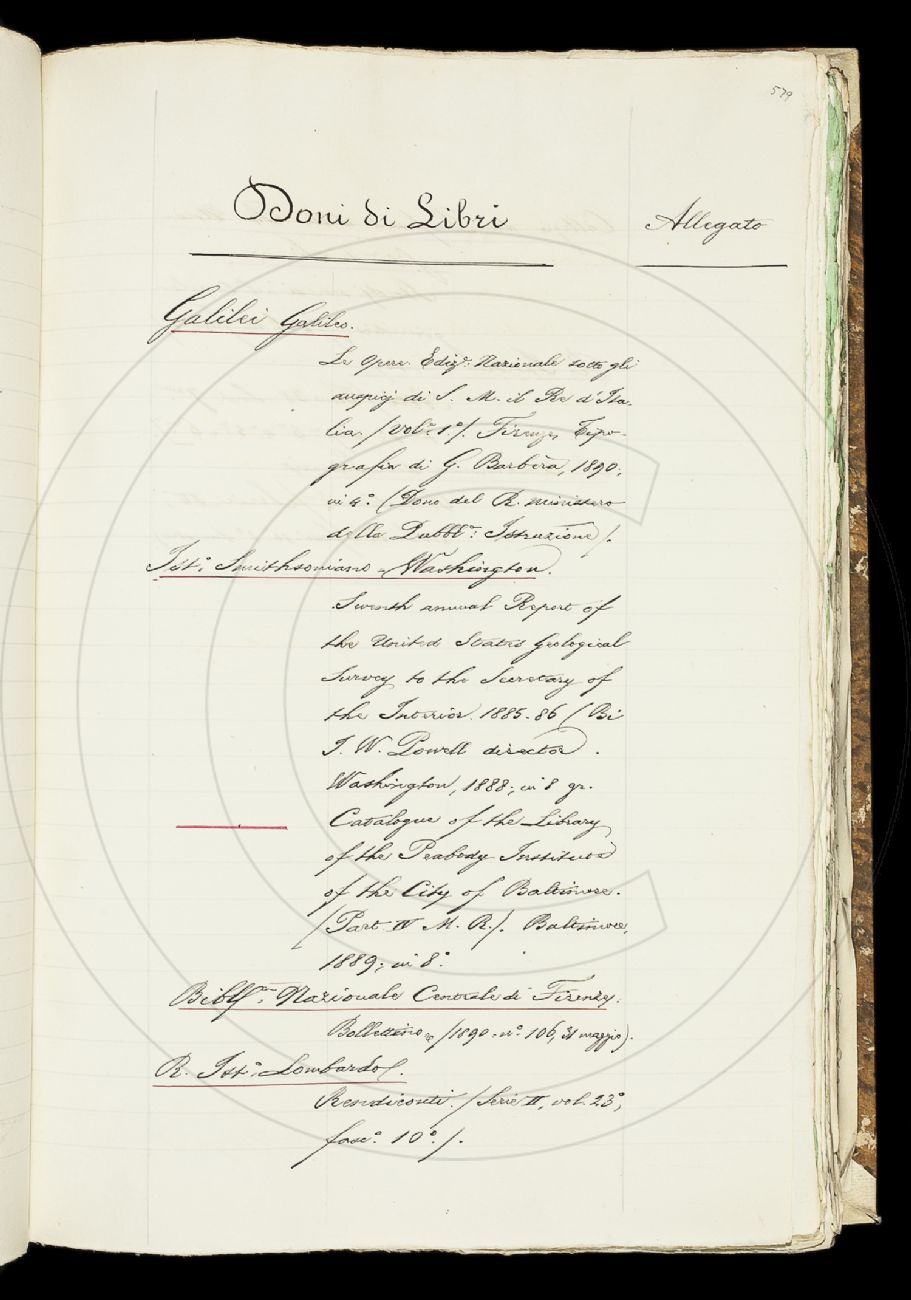 579
Doni di Libri
Allegato
Galilei Galileo.
Le Opere Edizᵉ: Nazionale sotto gli
auspicj di S. M. il Re d'Ita-
lia. (volᵉ 1º). Firenze, Tipo-
grafia di G. Barbèra, 1890;
in 4º. (Dono del R. Ministero
della Pubblᶜᵃ: Istruzione).
Istº. Smithsoniano - Washington.
Seventh annual Report of
the United States Geological
Survey to the Secretary of
the Interior. 1885-86 (Bi
J. W. Powell director).
Washington, 1888; in 8 gr.
Catalogue of the Library
of the Peabody Institute
of the City of Baltimore.
(Part IV M. R.). Baltimore,
1889; in 8º.
Bibliᶜᵃ: Nazionale Centrale di Firenze.
Bollettino (1890. nº. 106, 31 maggio).
R. Istº. Lombardo.
Rendiconti. (Serie II, vol. 23º,
fascº. 10º.).